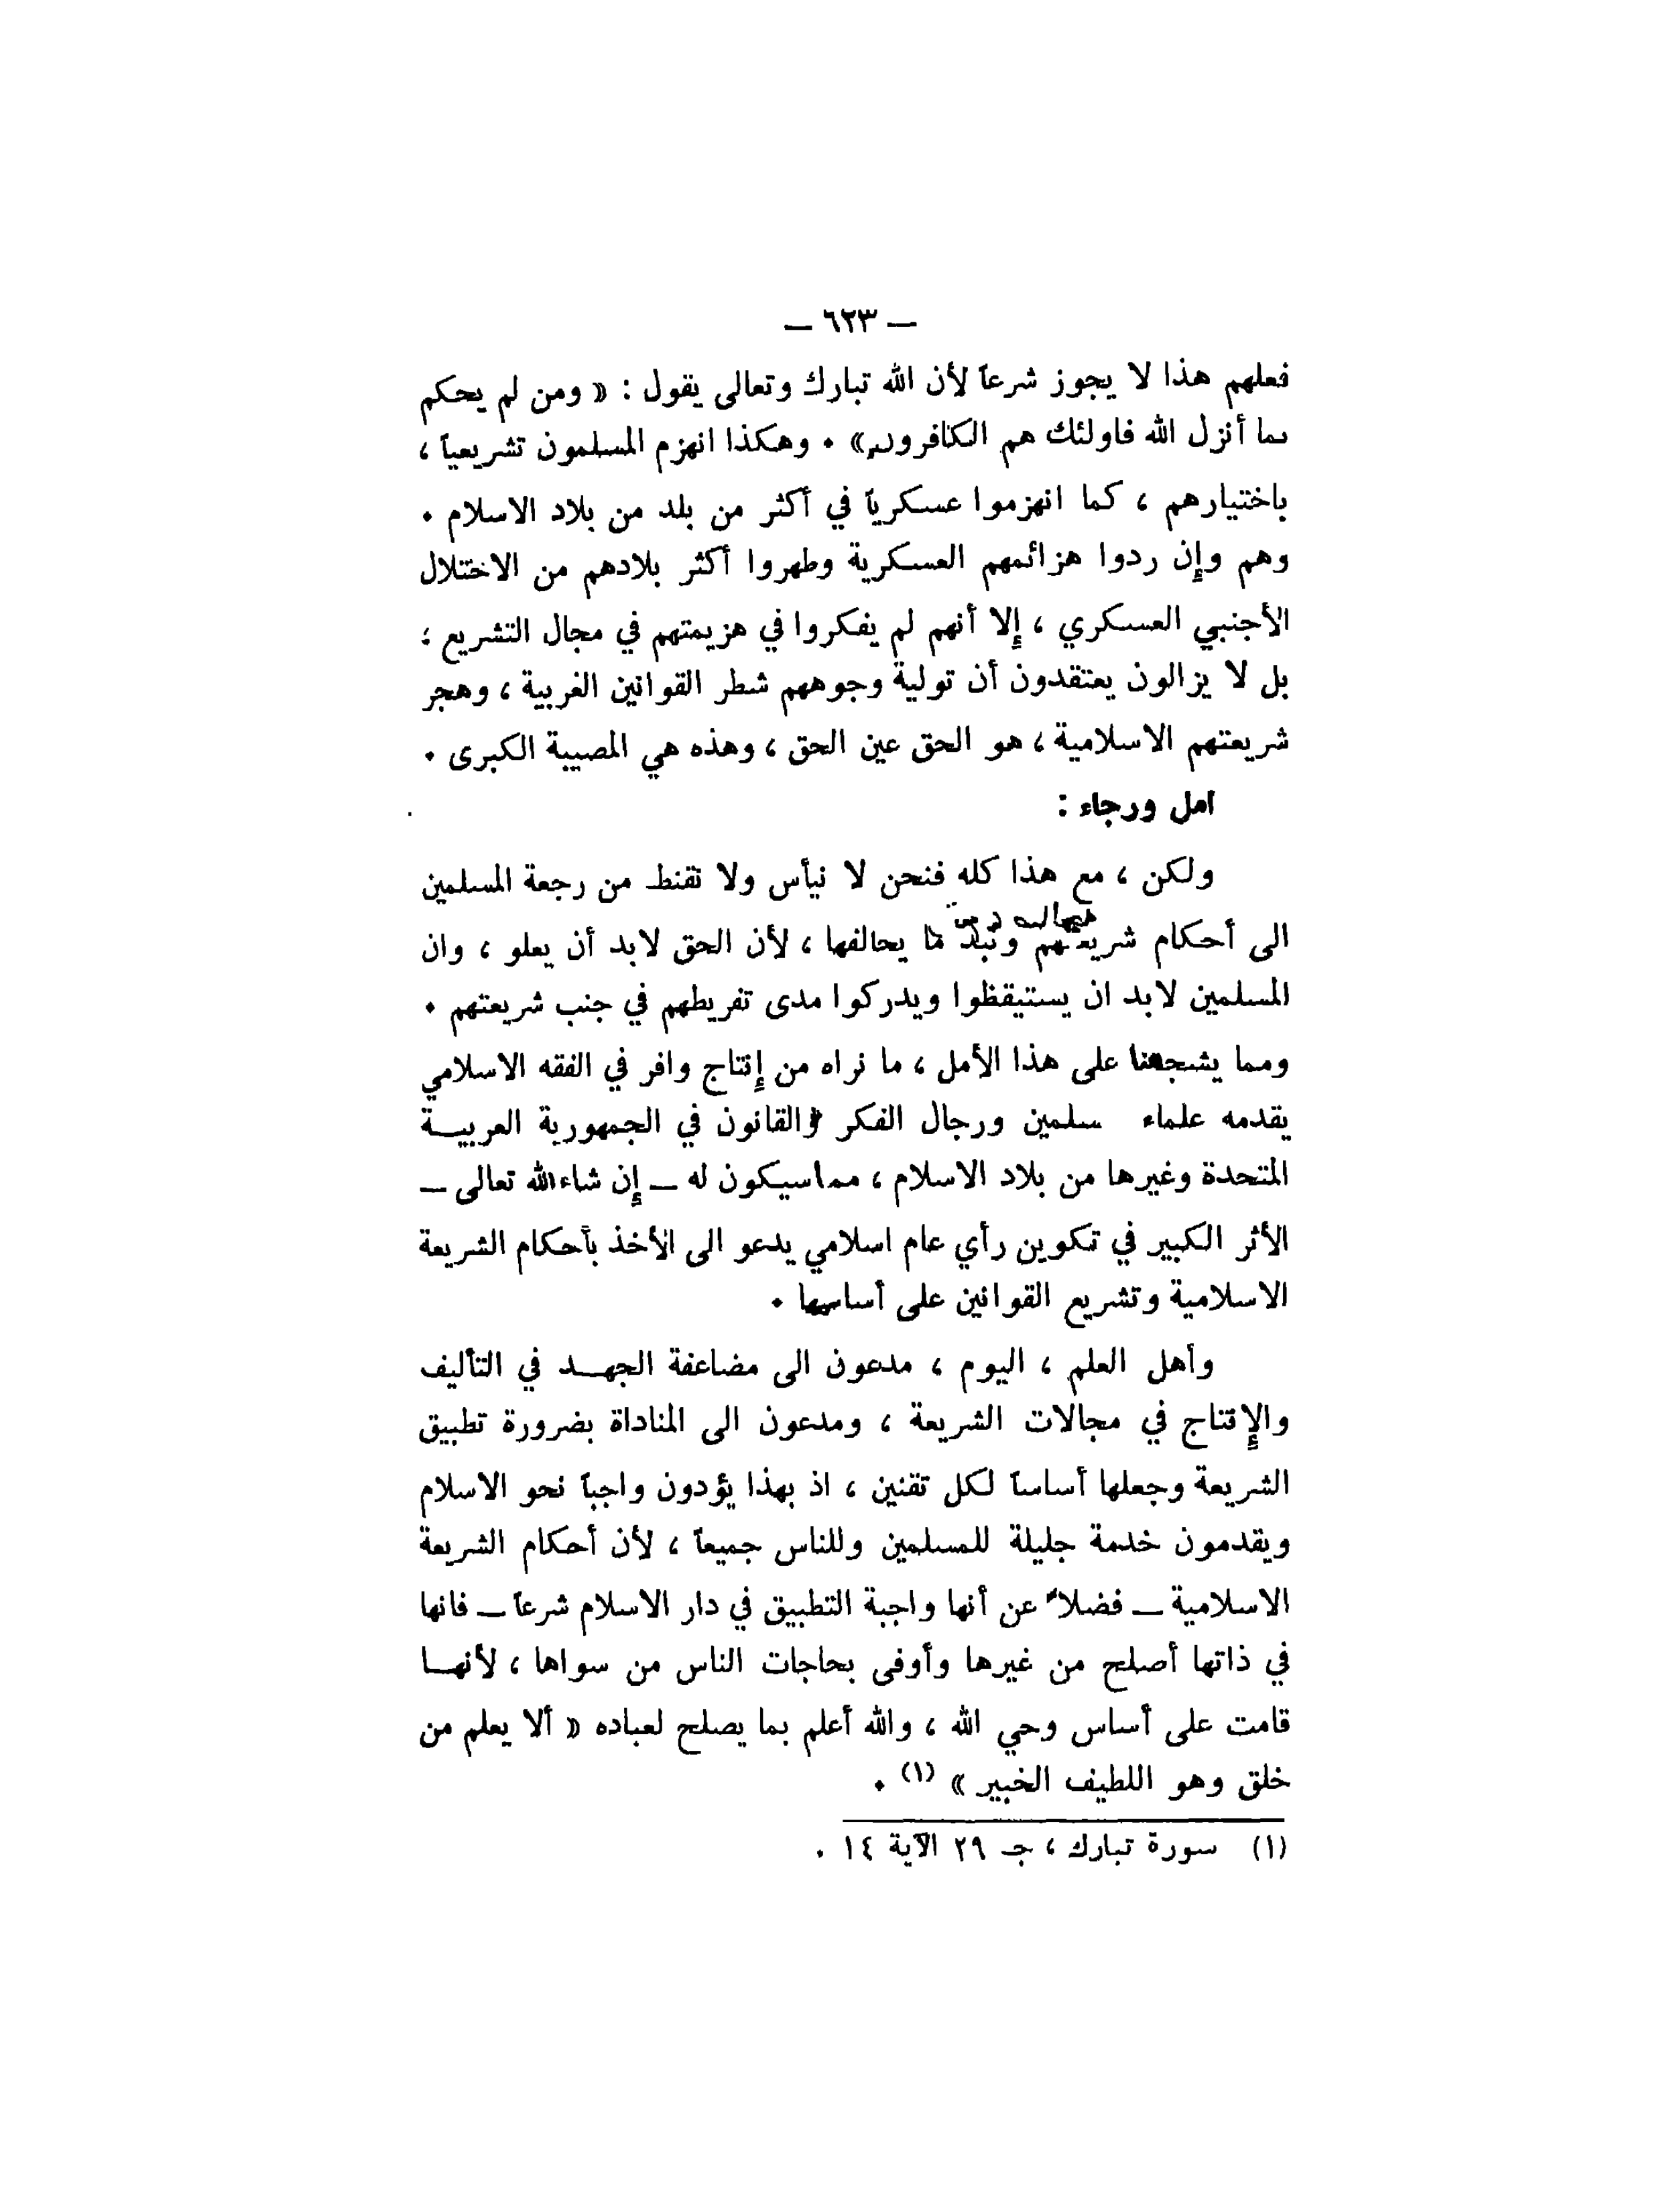 — ٦٢٣ —
فعلهم هذا لا يجوز شرعاً لأن الله تبارك وتعالى يقول : « ومن لم يحكم
بما أنزل الله فاولئك هم الكافرون» . وهكذا انهزم المسلمون تشريعياً ،
باختيارهم ، كما انهزموا عسكرياً في أكثر من بلد من بلاد الاسلام .
وهم وإن ردوا هزائمهم العسكرية وطهروا أكثر بلادهم من الاحتلال
الأجنبي العسكري ، إلا أنهم لم يفكروا في هزيمتهم في مجال التشريع ؛
بل لا يزالون يعتقدون أن تولية وجوههم شطر القوانين الغربية ، وهجر
شريعتهم الاسلامية ، هو الحق عين الحق ، وهذه هي المصيبة الكبرى .
امل ورجاء :
ولكن ، مع هذا كله فنحن لا نيأس ولا نقنط من رجعة المسلمين
الى أحكام شريعتهم ونبذ ما يخالفها ، لأن الحق لابد أن يعلو ، وان
المسلمين لابد ان يستيقظوا ويدركوا مدى تفريطهم في جنب شريعتهم .
ومما يشجعنا على هذا الأمل ، ما نراه من إنتاج وافر في الفقه الاسلامي
يقدمه علماء سلمين ورجال الفكر والقانون في الجمهورية العربيـة
المتحدة وغيرها من بلاد الاسلام ، مما سيكون له — إن شاء الله تعالى —
الأثر الكبير في تكوين رأي عام اسلامي يدعو الى الأخذ بأحكام الشريعة
الاسلامية وتشريع القوانين على أساسها .
وأهل العلم ، اليوم ، مدعون الى مضاعفة الجهـد في التأليف
والإنتاج في مجالات الشريعة ، ومدعون الى المناداة بضرورة تطبيق
الشريعة وجعلها أساساً لكل تقنين ، اذ بهذا يؤدون واجباً نحو الاسلام
ويقدمون خدمة جليلة للمسلمين وللناس جميعاً ، لأن أحكام الشريعة
الاسلامية — فضلاً عن أنها واجبة التطبيق في دار الاسلام شرعاً — فانها
في ذاتها أصلح من غيرها وأوفى بحاجات الناس من سواها ، لأنهـا
قامت على أساس وحي الله ، والله أعلم بما يصلح لعباده « ألا يعلم من
خلق وهو اللطيف الخبير » (١) .
(١) سورة تبارك ، جـ ٢٩ الآية ١٤ .